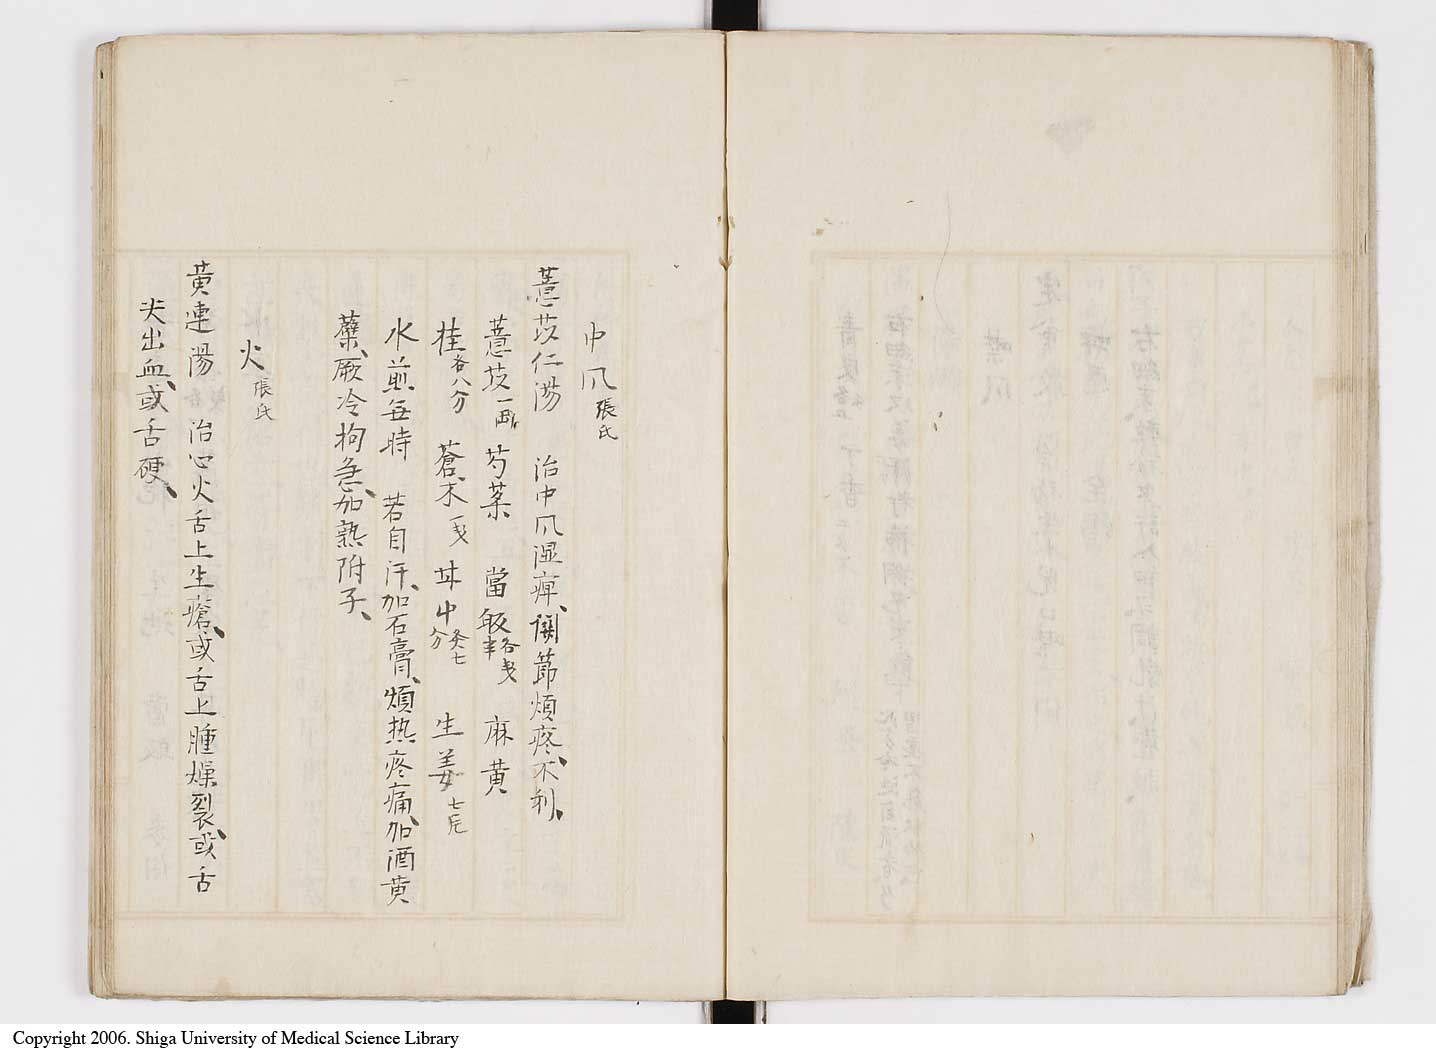 中爪 張氏
薏苡仁湯 治中爪湿痺、関節煩疼、不利、
薏苡 一両 芍薬 當皈 各戔半 麻黄
桂 各八分 蒼朮 一戔 甘中 炙七分 生姜 七片
水煎毎時 若自汗、加石膏、煩热疼痛、加酒黄
蘗、厥冷拘急、加熟附子、
火 張氏
黄連湯 治心火舌上生瘡、或舌上腫燥裂、或舌
尖出血、或舌硬、
Copyright 2006. Shiga University of Medical Science Library